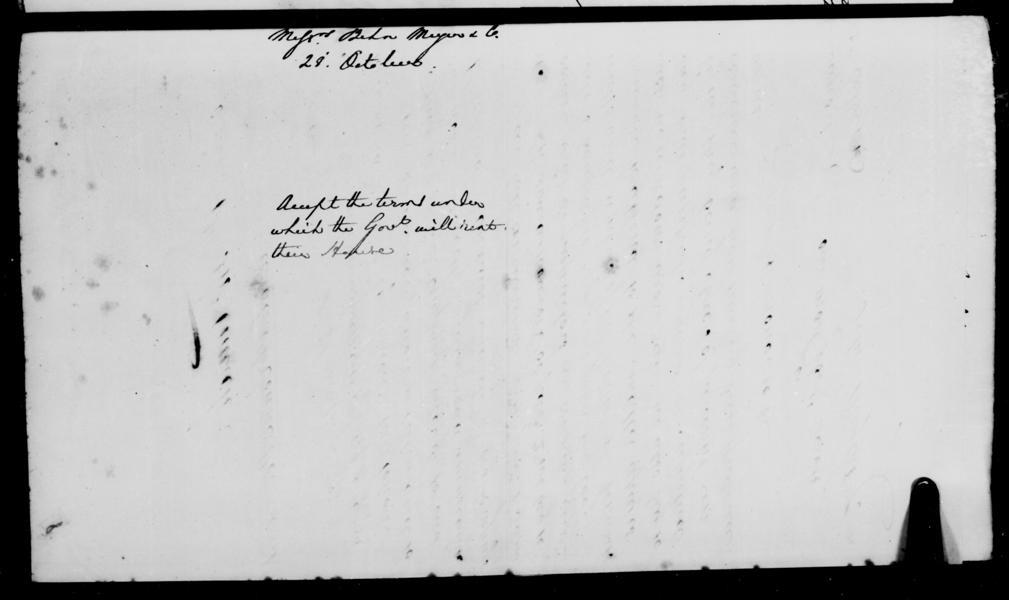 Messrs. Behn Meyer & Co.
28. October.
Accept the terms under
which the Govt. will rent
their House